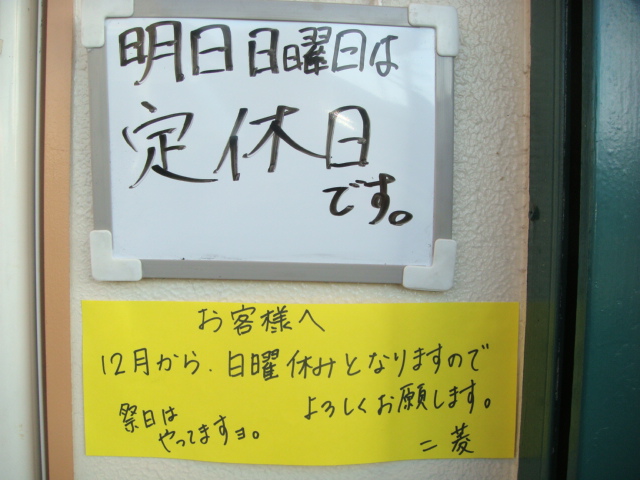 明日日曜日は
定休日
です。
お客様へ
12月から、日曜休みとなりますので
よろしくお願します。
祭日は
やってますョ。
二菱